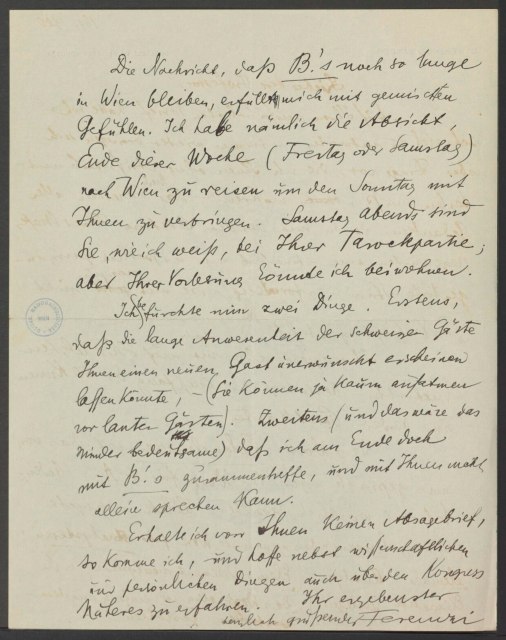 Die Nachricht, daß B.'s noch so lange
in Wien bleiben, erfüllt mich mit gemischten
Gefühlen. Ich habe nämlich die Absicht,
Ende dieser Woche (Freitag oder Samstag)
nach Wien zu reisen um den Sonntag mit
Ihnen zu verbringen. Samstag abends sind
Sie, wie ich weiß, bei Ihrer Tarockpartie;
aber Ihrer Vorlesung könnte ich beiwohnen.
Ich befürchte nur zwei Dinge. Erstens,
daß die lange Anwesenheit der schweizer Gäste
Ihnen einen neuen Gast unerwünscht erscheinen
lassen könnte, – (Sie können ja kaum aufatmen
vor lauter Gästen). Zweitens (und das wäre das
minder bedeutsame) daß ich am Ende doch
mit B.'s zusammentreffe, und mit Ihnen nicht
allein sprechen kann.
Erhalte ich von Ihnen keinen Absagebrief,
so komme ich, und hoffe nebst wissenschaftlichen
und persönlichen Dingen auch über den Kongress
Näheres zu erfahren. Ihr ergebenster
herzlich grüßender Ferenczi